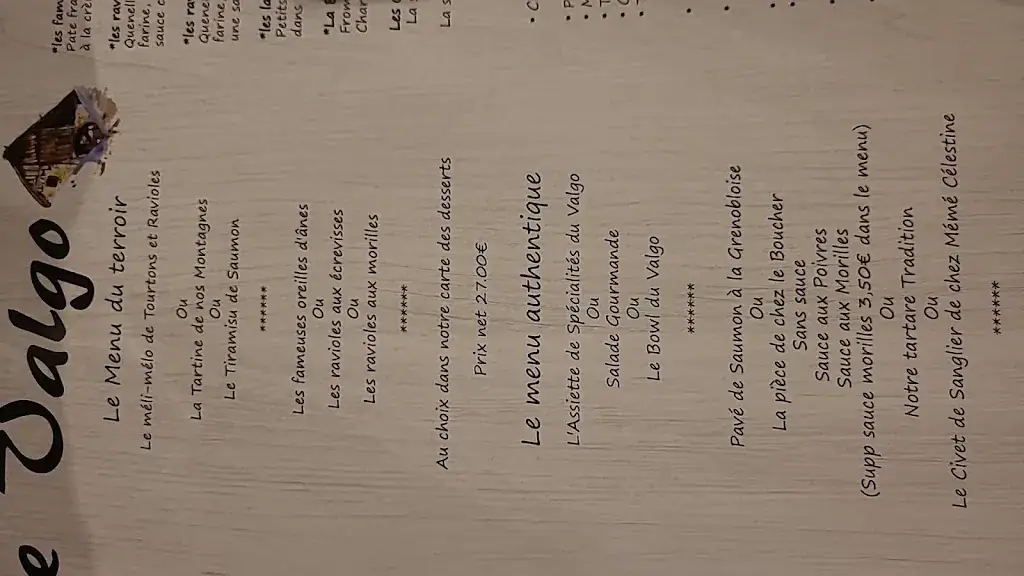 e Valgo
Le Menu du terroir
Le méli-mélo de Tourtons et Ravioles
Ou
La Tartine de nos Montagnes
Ou
Le Tiramisu de Saumon
******
Les fameuses oreilles d'ânes
Ou
Les ravioles aux écrevisses
Ou
Les ravioles aux morilles
******
Au choix dans notre carte des desserts
Prix net 27.00€
Le menu authentique
L'Assiette de Spécialités du Valgo
Ou
Salade Gourmande
Ou
Le Bowl du Valgo
******
Pavé de Saumon à la Grenobloise
Ou
La pièce de chez le Boucher
Sans sauce
Sauce aux Poivres
Sauce aux Morilles
(Supp sauce morilles 3,50€ dans le menu)
Ou
Notre tartare Tradition
Ou
Le Civet de Sanglier de chez Mémé Célestine
******
*les fam
Pate fra
à la crè
*les rav
Quenell
farine,
sauce c
*les rav
Quene
farine,
une sa
*les la
Petits
dans
*La
From
Char
Les
La
La s